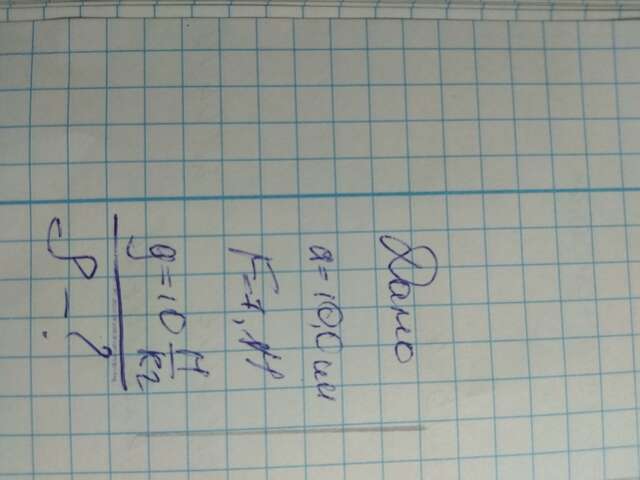 Дано
a = 10,0 см
g = 10 Н/кг
ρ - ?